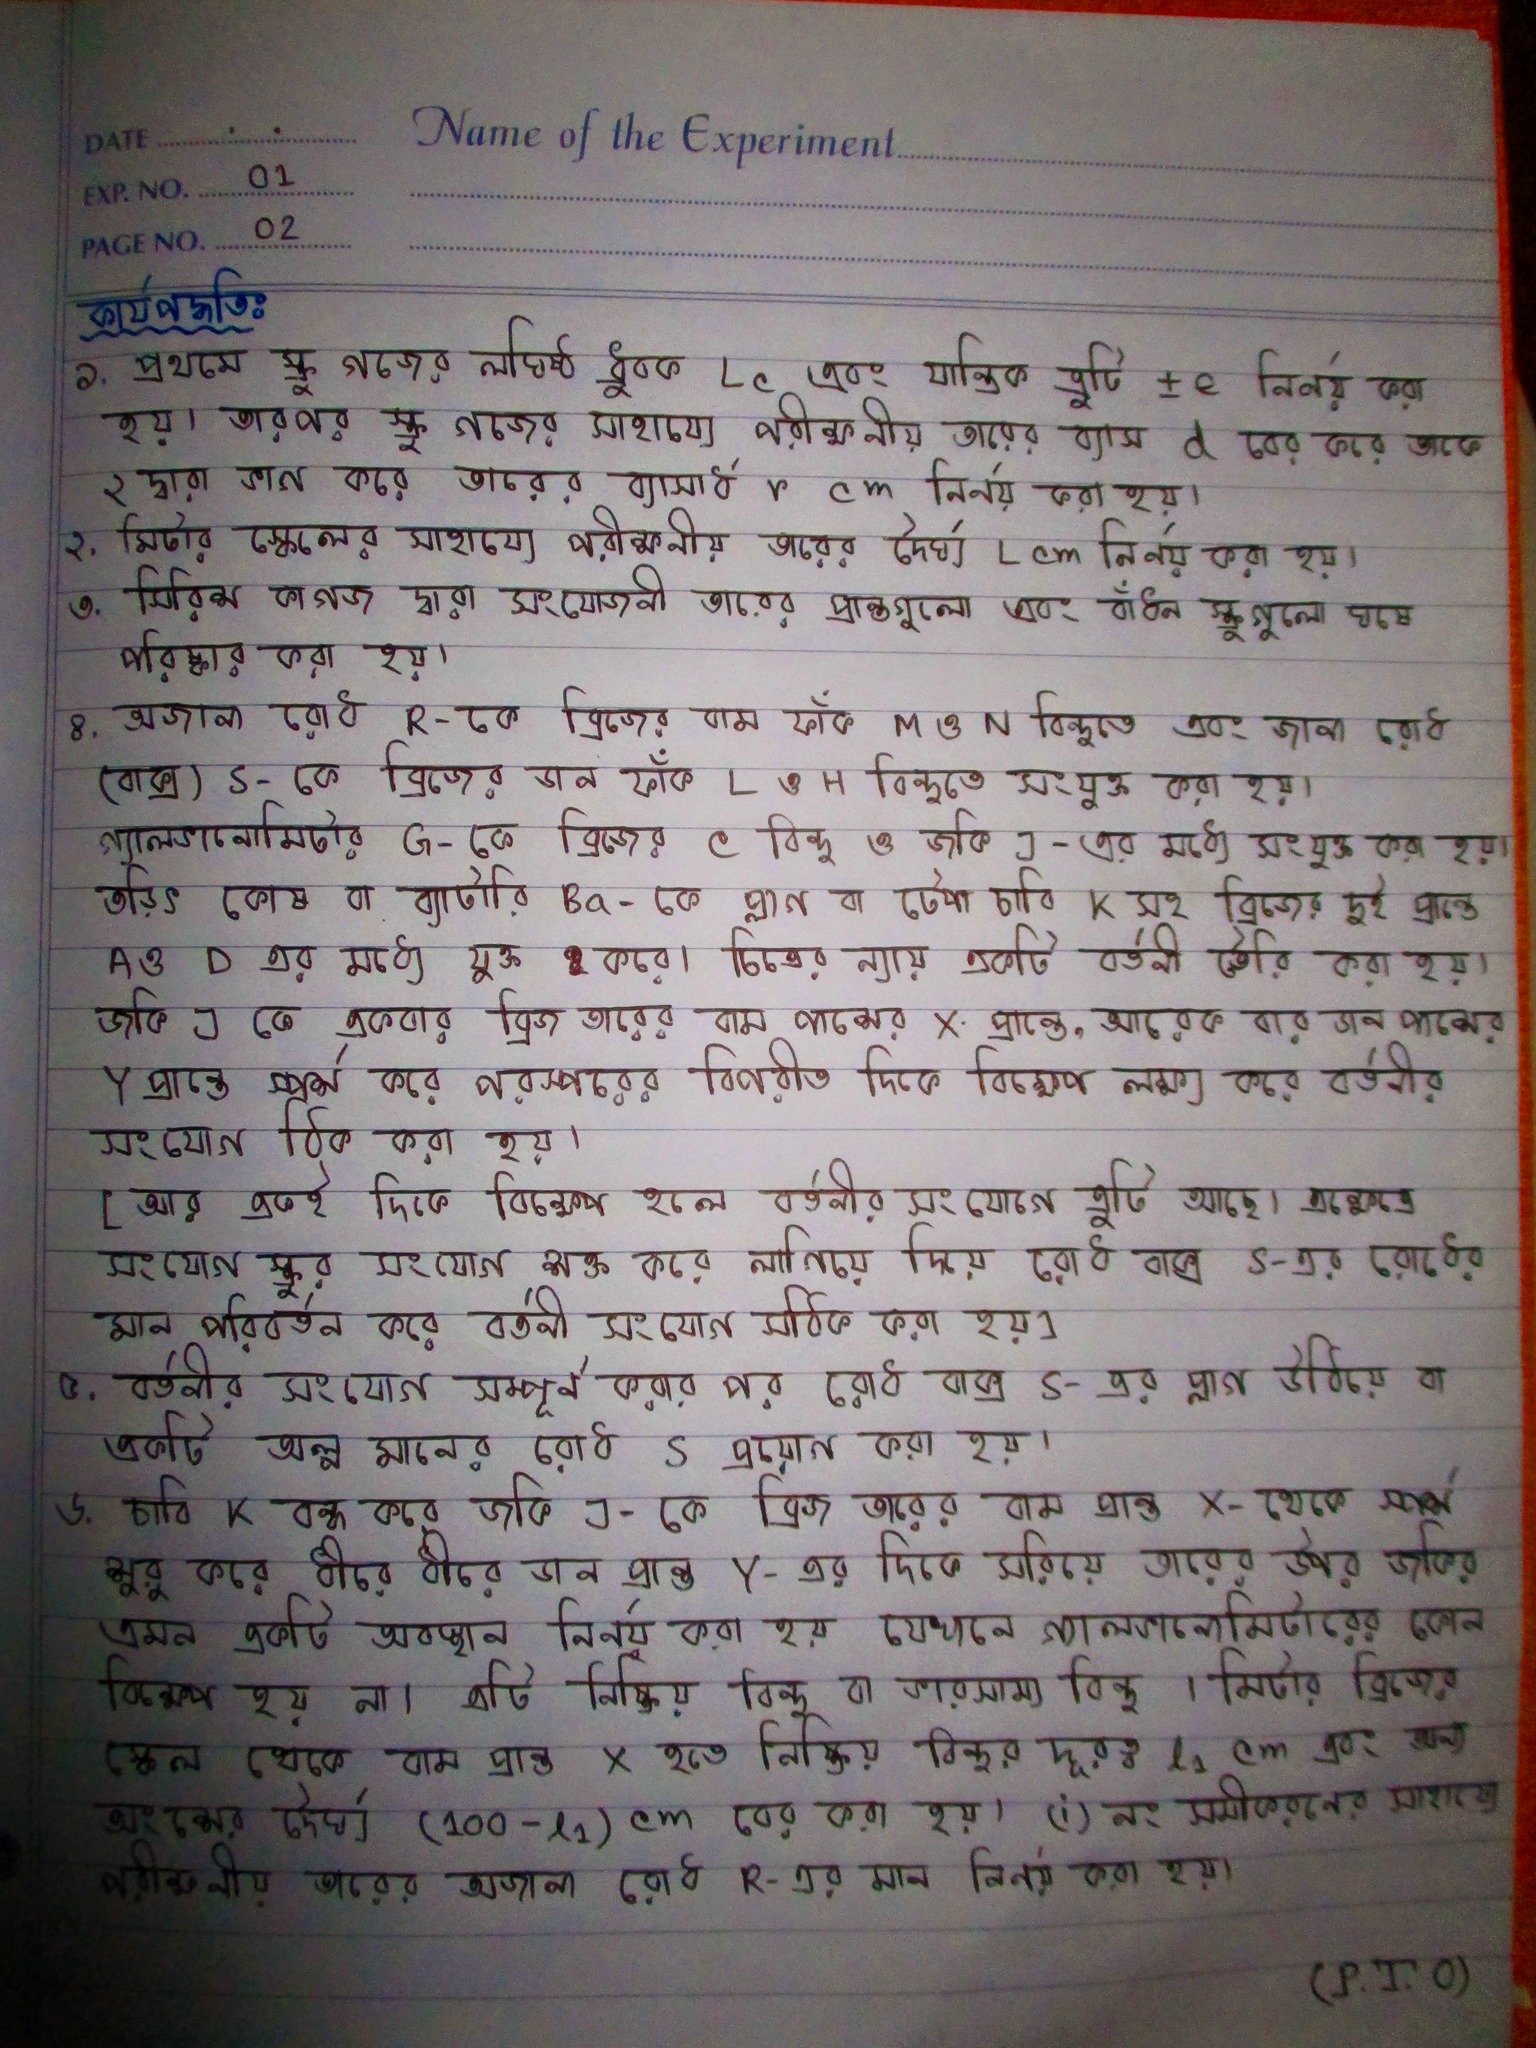 DATE ........................ Name of the Experiment
EXP. NO. 01
PAGE NO. 02
কার্যপদ্ধতিঃ
১. প্রথমে স্ক্রু গজের লঘিষ্ঠ ধ্রুবক Lc এবং যান্ত্রিক ত্রুটি ±e নির্ণয় করা
হয়। তারপর স্ক্রু গজের সাহায্যে পরীক্ষনীয় তারের ব্যাস d বের করে তাকে
২ দ্বারা ভাগ করে তারের ব্যাসার্ধ r cm নির্ণয় করা হয়।
২. মিটার স্কেলের সাহায্যে পরীক্ষনীয় তারের দৈর্ঘ্য L cm নির্ণয় করা হয়।
৩. সিরিস কাগজ দ্বারা সংযোজনী তারের প্রান্তগুলো এবং বাঁধন স্ক্রুগুলো ঘষে
পরিষ্কার করা হয়।
৪. অজানা রোধ R-কে ব্রিজের বাম ফাঁক M ও N বিন্দুতে এবং জানা রোধ
(বাক্স) S-কে ব্রিজের ডান ফাঁক L ও H বিন্দুতে সংযুক্ত করা হয়।
গ্যালভানোমিটার G-কে ব্রিজের C বিন্দু ও জকি J-এর মধ্যে সংযুক্ত করা হয়।
তড়িৎ কোষ বা ব্যাটারি Ba-কে প্লাগ বা টেপা চাবি K সহ ব্রিজের দুই প্রান্তে
A ও D এর মধ্যে যুক্ত করে। চিত্রের ন্যায় একটি বর্তনী তৈরি করা হয়।
জকি J কে একবার ব্রিজ তারের বাম পাশের X প্রান্তে, আরেক বার ডান পাশের
Y প্রান্তে স্পর্শ করে পরস্পরের বিপরীত দিকে বিক্ষেপ লক্ষ্য করে বর্তনীর
সংযোগ ঠিক করা হয়।
[আর একই দিকে বিক্ষেপ হলে বর্তনীর সংযোগে ত্রুটি আছে। এক্ষেত্রে
সংযোগ স্ক্রুর সংযোগ শক্ত করে লাগিয়ে দিয়ে রোধ বাক্স S-এর রোধের
মান পরিবর্তন করে বর্তনী সংযোগ সঠিক করা হয়]
৫. বর্তনীর সংযোগ সম্পূর্ন করার পর রোধ বাক্স S-এর প্লাগ উঠিয়ে বা
একটি অল্প মানের রোধ S প্রয়োগ করা হয়।
৬. চাবি K বন্ধ করে জকি J-কে ব্রিজ তারের বাম প্রান্ত X-থেকে স্পর্শ
শুরু করে ধীরে ধীরে ডান প্রান্ত Y-এর দিকে সরিয়ে তারের উপর জকির
এমন একটি অবস্থান নির্ণয় করা হয় যেখানে গ্যালভানোমিটারের কোন
বিক্ষেপ হয় না। এটি নিষ্ক্রিয় বিন্দু বা ভারসাম্য বিন্দু। মিটার ব্রিজের
স্কেল থেকে বাম প্রান্ত X হতে নিষ্ক্রিয় বিন্দুর দূরত্ব l₁ cm এবং অন্য
অংশের দৈর্ঘ্য (100-l₁) cm বের করা হয়। (i) নং সমীকরনের সাহায্যে
পরীক্ষনীয় তারের অজানা রোধ R-এর মান নির্ণয় করা হয়।
(P.T.O)